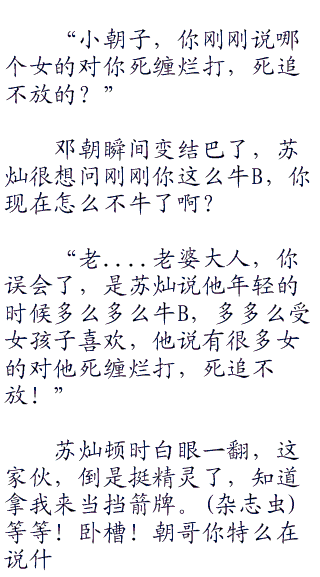 “小朝子，你刚刚说哪
个女的对你死缠烂打，死追
不放的？”
邓朝瞬间变结巴了，苏
灿很想问刚刚你这么牛B，你
现在怎么不牛了啊？
“老....老婆大人，你
误会了，是苏灿说他年轻的
时候多么多么牛B，多多么受
女孩子喜欢，他说有很多女
的对他死缠烂打，死追不
放！”
苏灿顿时白眼一翻，这
家伙，倒是挺精灵了，知道
拿我来当挡箭牌。(杂志虫)
等等！卧槽！朝哥你特么在
说什